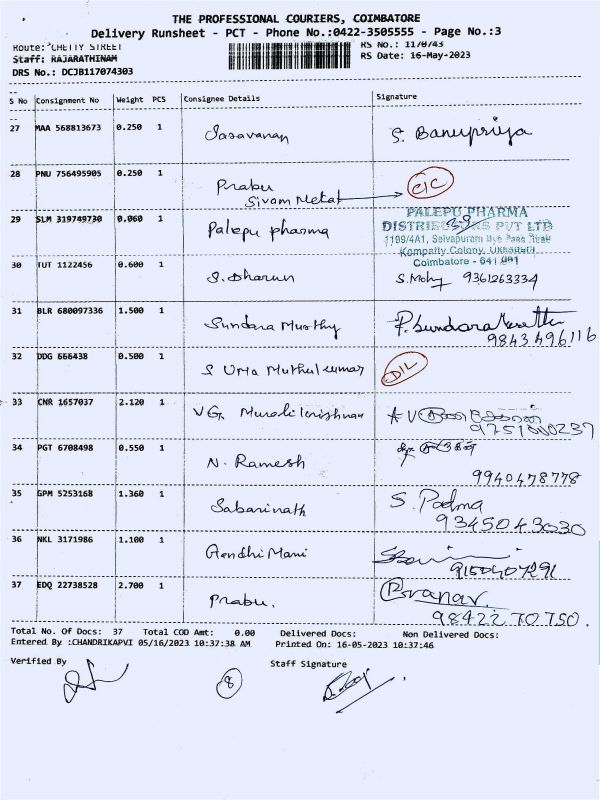 THE PROFESSIONAL COURIERS, COIMBATORE
Delivery Runsheet - PCT - Phone No.:0422-3505555 - Page No.:3
Route: CHETTY STREET RS No.: 1170743
Staff: RAJARATHINAM RS Date: 16-May-2023
DRS No.: DCJB117074303
S No Consignment No Weight PCS Consignee Details Signature
27 MAA 568813673 0.250 1 Saravanan S. Banupriya
28 PNU 756495905 0.250 1 Prabu
Sivam Metal CIC
29 SLM 319749730 0.060 1 Palepu pharma PALEPU PHARMA
DISTRIBUTORS PVT LTD
1199/4A1, Selvapuram Bye Pass Road
Kompatty Colony, Ukkadam
Coimbatore - 641 001
30 TUT 1122456 0.600 1 S. Dharun S. Mohy 9361263334
31 BLR 680097336 1.500 1 Sundara Murthy P. Sundara
9843496116
32 DDG 666438 0.500 1 S Uma Muthukumar D/L
33 CNR 1657037 2.120 1 VG. Muralikrishnan
9751000237
34 PGT 6708498 0.550 1 N. Ramesh
9940478778
35 GPM 5253168 1.360 1 Sabarinath S. Padma
9345043030
36 NKL 3171986 1.100 1 Gandhi Mani
9150407291
37 EDQ 22738528 2.700 1 Prabu. Pranav.
98422 70 750.
Total No. Of Docs: 37 Total COD Amt: 0.00 Delivered Docs: Non Delivered Docs:
Entered By :CHANDRIKAPVI 05/16/2023 10:37:38 AM Printed On: 16-05-2023 10:37:46
Verified By Staff Signature
8